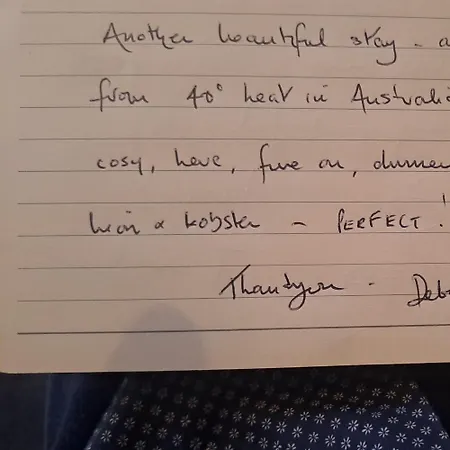 Another beautiful stay - a
from 40° heat in Australia
cosy, here, fire on, dinner
& lobster ~ PERFECT!
Thankyou - Deb